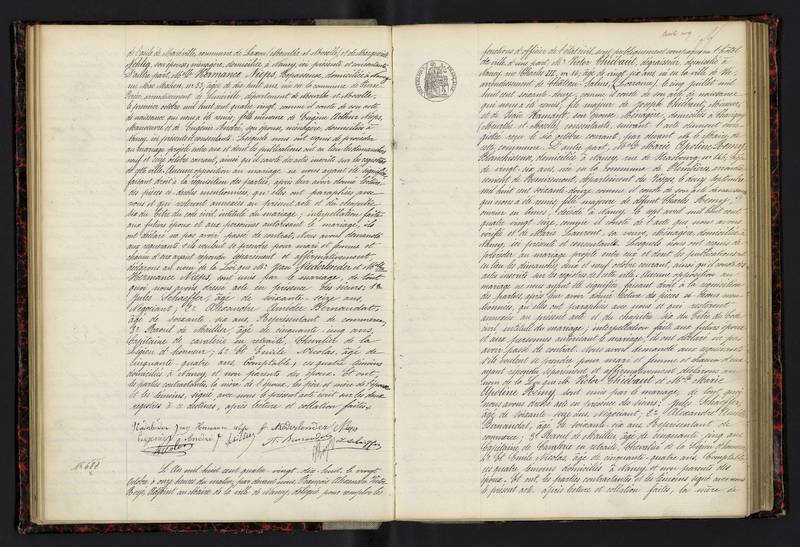 de l'asile de Maréville, commune de Laxou (Meurthe et Moselle) et de Marguerite
son épouse, ménagère, domiciliée à Nancy, ici présente et consentante
D'autre part, Mlle Hermance Nieps, Repasseuse, domiciliée à Nancy
rue 33, âgée de dix huit ans, née en la commune de
arrondissement de Lunéville, département de Meurthe et Moselle,
le premier octobre mil huit cent quatre vingt, comme il conste de son acte
de naissance qui nous a été remis, fille mineure de Eugène Arthur Nieps,
Manoeuvre et de Eugénie André, son épouse, ménagère, domiciliés à
Nancy, ici présents et consentants. Lesquels nous ont requis de procéder
au mariage projeté entre eux et dont les publications ont eu lieu les dimanches
neuf et seize octobre courant, ainsi qu'il conste des actes inscrits sur les registres
de cette ville. Aucune opposition au mariage ne nous ayant été signifiée
faisant droit à la réquisition des parties, après leur avoir donné lecture
des pièces ci-dessus mentionnées, qu'elles ont paraphées avec
nous et qui resteront annexées au présent acte et du chapitre
six du Titre du code civil, intitulé du mariage; interpellation faite
aux futurs époux et aux personnes autorisant le mariage, ils
ont déclaré ne pas avoir passé de contrat, Nous avons demandé
aux requérants s'ils veulent se prendre pour mari et femme et
chacun d'eux ayant répondu séparément et affirmativement,
déclarons au nom de la Loi que Mr Jean Niederlender et Mlle
Hermance Nieps sont unis par le mariage, de tout
quoi nous avons dressé acte en présence des sieurs: 1°
Jules Schaeffer, âgé de soixante-seize ans,
Négociant; 2° Alexandre Amédée Bernardat,
âgé de soixante six ans, Représentant de commerce,
3° Raoul de Mailler, âgé de cinquante cinq ans,
Capitaine de cavalerie en retraite, Chevalier de la
Légion d'honneur; 4° et Emile Nicolas, âgé de
cinquante-quatre ans, Comptable, ces quatre témoins
domiciliés à Nancy et non parents des époux. Et ont,
les parties contractantes, la mère de l'époux, les père et mère de l'épouse
et les témoins, signé avec nous le présent acte écrit sur les deux
registres à ce destinés, après lecture et collation faites.
N° 688
L'An mil huit cent quatre vingt dix huit, le vingt
octobre à onze heures du matin, par devant nous, François Alexandre
Adjoint au Maire de la ville de Nancy, délégué pour remplir les
fonctions d'officier de l'état civil, sont publiquement comparus en l'hôtel
de ville, d'une part, Mr Victor Thiébaut, dégraisseur, domicilié à
Nancy, rue Charles III, n° 16, âgé de vingt six ans, né en la ville de Vic,
arrondissement de Château-Salins, (Lorraine), le cinq juillet mil
huit cent soixante douze, comme il conste de son acte de naissance
qui nous a été remis, fils majeur de Joseph Thiébaut, Mineur,
et de son épouse, Ménagère, domiciliés à Chavigny
(Meurthe et Moselle), consentants, suivant l'acte dûment
reçu le six octobre courant, par devant le Maire de
cette commune. D'autre part, Mlle Marie Apoline Remy,
Blanchisseuse, domiciliée à Nancy, rue de Strasbourg, n° 146, âgée
de vingt six ans, née en la commune de Plombières, arrondissement
de Remiremont, département des Vosges, le douze septembre
mil huit cent soixante douze, comme il conste de son acte de naissance
qui nous a été remis, fille majeure de défunt Charles Remy,
ouvrier en limes, décédé à Nancy, le sept avril mil huit cent
quatre vingt seize, comme il conste de l'acte que nous avons
vérifié et de Marie Laurent, sa veuve, Ménagère, domiciliée à
Nancy, ici présente et consentante. Lesquels nous ont requis de
procéder au mariage projeté entre eux et dont les publications ont
eu lieu les dimanches, deux et neuf octobre courant, ainsi qu'il conste des
actes inscrits sur les registres de cette ville. Aucune opposition au
mariage ne nous ayant été signifiée, faisant droit à la réquisition
des parties, après leur avoir donné lecture des pièces ci-dessus mentionnées,
qu'elles ont paraphées avec nous et qui resteront
annexées au présent acte et du chapitre six du Titre du Code
civil, intitulé du mariage, interpellation faite aux futurs époux
et aux personnes autorisant le mariage, ils ont déclaré ne pas
avoir passé de contrat. Nous avons demandé aux requérants
s'ils veulent se prendre pour mari et femme et chacun d'eux
ayant répondu séparément et affirmativement, déclarons au
nom de la Loi que Mr Victor Thiébaut et Mlle Marie
Apoline Remy sont unis par le mariage, de tout quoi
nous avons dressé acte en présence des sieurs: Jules Schaeffer,
âgé de soixante seize ans, Négociant, 2° Alexandre Amédée
Bernardat, âgé de soixante six ans, Représentant de
commerce, 3° Raoul de Mailler, âgé de cinquante cinq ans,
Capitaine de Cavalerie en retraite, Chevalier de la Légion d'honneur
4° et Emile Nicolas, âgé de cinquante-quatre ans, Comptable,
ces quatre témoins domiciliés à Nancy et non parents des
époux. Et ont les parties contractantes et les témoins signé avec nous
le présent acte, après lecture et collation faites, la mère de